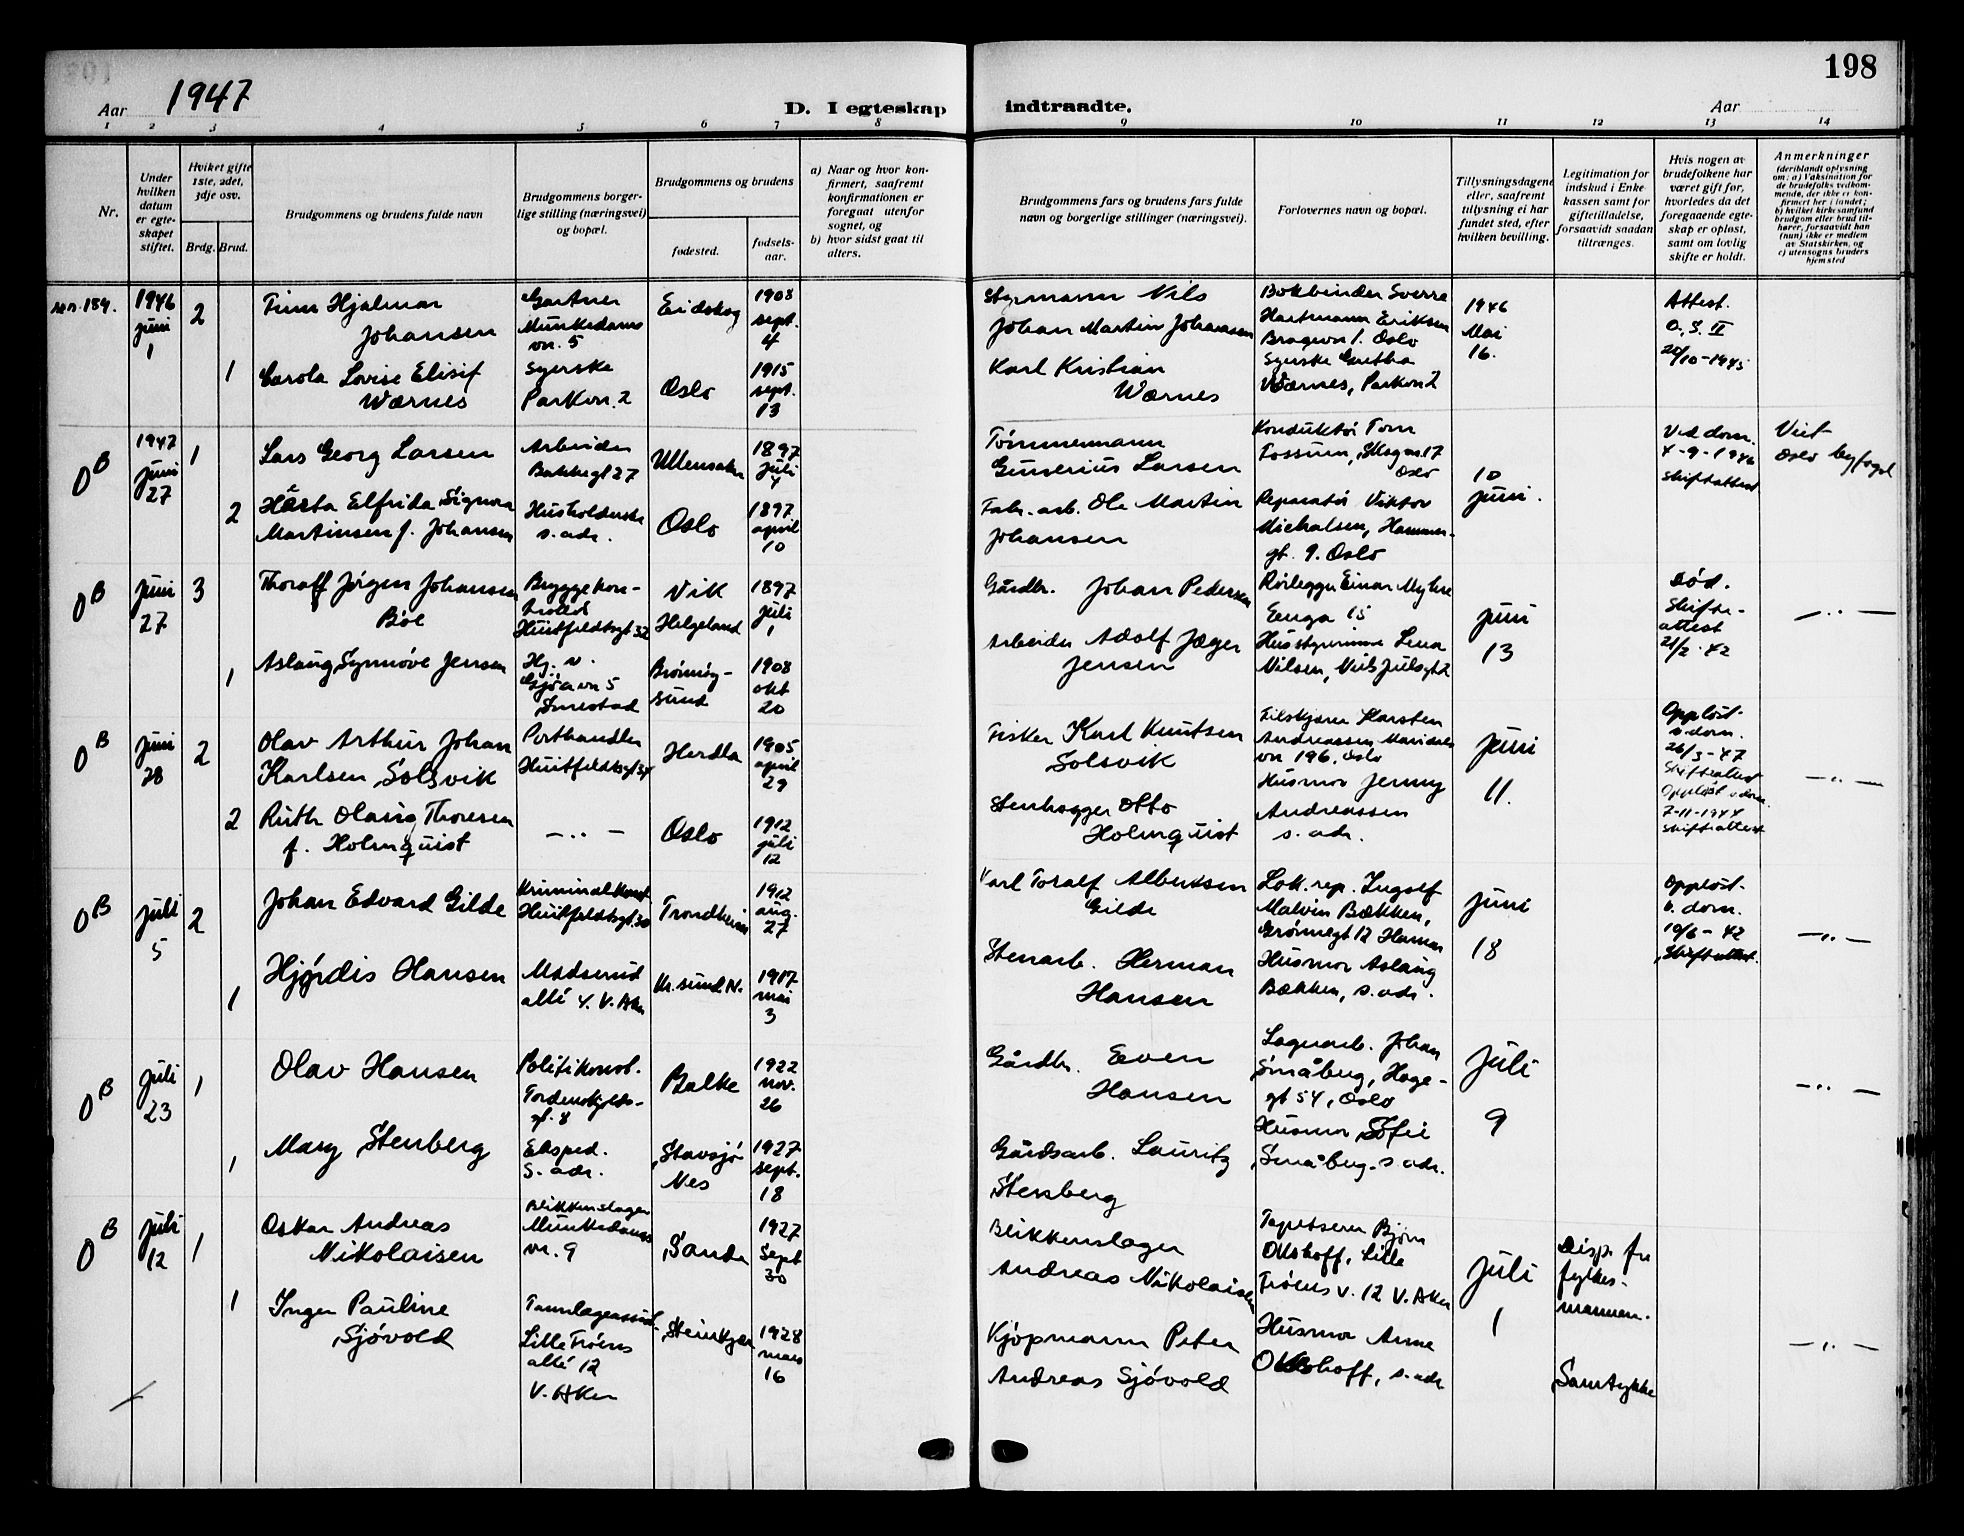 198
Aar 1947
D. I egteskap indtraadte.
Aar
1 2 3 4 5 6 7 8 9 10 11 12 13 14
Nr.
Under
hvilken
datum
er egte-
skapet
stiftet.
Hviket gifte
1ste, 2det,
3dje osv.
Brdg. Brud.
Brudgommens og brudens fulde navn
Brudgommens borger-
lige stilling (næringsvei)
og bopæl.
Brudgommens og brudens
fødested.
fødsels-
aar.
a) Naar og hvor kon-
firmert, saafremt
konfirmationen er
foregaat utenfor
sognet, og
b) hvor sidst gaat til
alters.
Brudgommens fars og brudens fars fulde
navn og borgerlige stillinger (næringsvei).
Forlovernes navn og bopæl.
Tillysningsdagene
eller, saafremt
tillysning ei har
fundet sted, efter
hvilken bevilling.
Legitimation for
indskud i Enke-
kassen samt for
giftetilladelse,
forsaavidt saadan
tiltrænges.
Hvis nogen av
brudefolkene har
været gift før,
hvorledes da det
foregaaende egte-
skap er opløst,
samt om lovlig
skifte er holdt.
Anmerkninger
(deriblandt oplysning
om: a) Vaksination for
de brudefolks vedkom-
mende, der ikke er kon-
firmert her i landet;
b) hvilket kirkesamfund
brudgom eller brud til-
hører, forsaavidt han
(hun) ikke er medlem
av Statskirken, og
c) utensogns bruders
hjemsted
189.
1946
juni
1
2
Finn Hjalmar
Johansen
Gartner
Munkedams
vn. 5
Eidskog
1908
sept.
4
Styrmann Nils
Johan Martin Johansen
Bokbinder Sverre
Hartmann Eriksen
1. Oslo
1946
Mai
16.
Attest.
O.S. II
20/10-1945
1
Carola Lovise Elisif
Wærnes
Syerske
Parkvn. 2
Oslo
1915
sept.
13
Karl Kristian
Wærnes
Syerske
Wærnes, Parkvn 2
O B
1947
juni
27
1
Lars Georg Larsen
Arbeider
Bakkegt 27
Ullensaker
1897
juli
4
Tømmermann
Gunerius Larsen
Konduktør Tom
Fossum, 17
Oslo
10
juni.
Ved dom.
4-9-1946
Skifteattest
Viet
Oslo byfogd
2
Hærta Elfrida Signora
Martinsen f. Johansen
Husholderske
s. adr.
Oslo
1897
april
10
Fabr. arb. Ole Martin
Johansen
Reparatør Viktor
Michalsen, Hammer-
gt. 9. Oslo
O B
juni
27
3
Thoralf Jørgen Johansen
Bøe
Bryggekon-
trollør
Huitfeldtsgt 32
Vik
Helgeland
1897
juli
1
Gårdbr. Johan Pedersen
Rørlegger Einar Myhre
Enga 15
juni
13
Død.
Skifte-
attest
21/2-42
— ·· —
1
Aslaug Synnøve Jensen
Hj. v.
Gjøavn 5
Smestad
Brønnøy-
sund
1908
okt
20
Arbeider Adolf Jæger
Jensen
Husstyrinne Lena
Nilsen, Niels Juelsgt 2
O B
juni
28
2
Olav Arthur Johan
Karlsen Solsvik
Porthandler
Huitfeldtsgt 34
Herdla
1905
april
29
Fisker Karl Knutsen
Solsvik
Filskjærer Karsten
Andreassen Maridals
vn 196, Oslo
juni
11.
Oppløst
v. dom.
26/3-47
Skifteattest
Oppløst v dom.
7-11-1944
Skifteattest
— ·· —
2
Ruth Olaug Thoresen
f. Holmquist
— ·· —
Oslo
1912
juli
12
Stenhogger Otto
Holmquist
Husmor Jenny
Andreassen
s. adr.
O B
juli
5
2
Johan Edvard Gilde
Kriminalkonst
Huitfeldtsgt. 30
Trondheim
1912
aug.
27
Karl Toralf Albertsen
Gilde
Lok. rep. Ingolf
Malvin Bækken,
Grønnegt 12 Hamar
juni
18
Oppløst
v. dom.
10/6-42
Skifteattest.
— ·· —
1
Hjørdis Hansen
Madserud
allé 4. V. Aker
Kr.sund N.
1917
mai
3
Stenarb. Herman
Hansen
Husmor Aslaug
Bækken, s. adr.
O B
juli
23
1
Olav Hansen
Politikonst.
Tordenskjolds-
gt. 8
Balke
1922
nov.
26
Gårdbr. Even
Hansen
Lagerarb. Johan
Småberg, Hage-
gt 54, Oslo
juli
9
— ·· —
1
Mary Stenberg
Eksped.
S. adr.
Stavsjø
Nes
1927
sept.
18
Gårdsarb. Lauritz
Stensberg
Husmor Sofie
Småberg. s. adr.
O B
juli
12
1
Oskar Andreas
Nikolaisen
Blikkenslager
Munkedams
vn. 9
Sande
1927
Sept
30
Blikkenslager
Andreas Nikolaisen
Tapetserer Bjørn
Olshoff, Lille
Frøens v. 12 V. Aker
juli
1
Disp. fra
fylkes-
mannen.
1
Inger Pauline
Sjøvold
Tannlegeassist.
Lille Frøens
allé 12
V. Aker
Steinkjer
1928
mars
16
Kjøpmann Peter
Andreas Sjøvold
Husmor Anne
Olshoff, s. adr
Samtykke
— ·· —